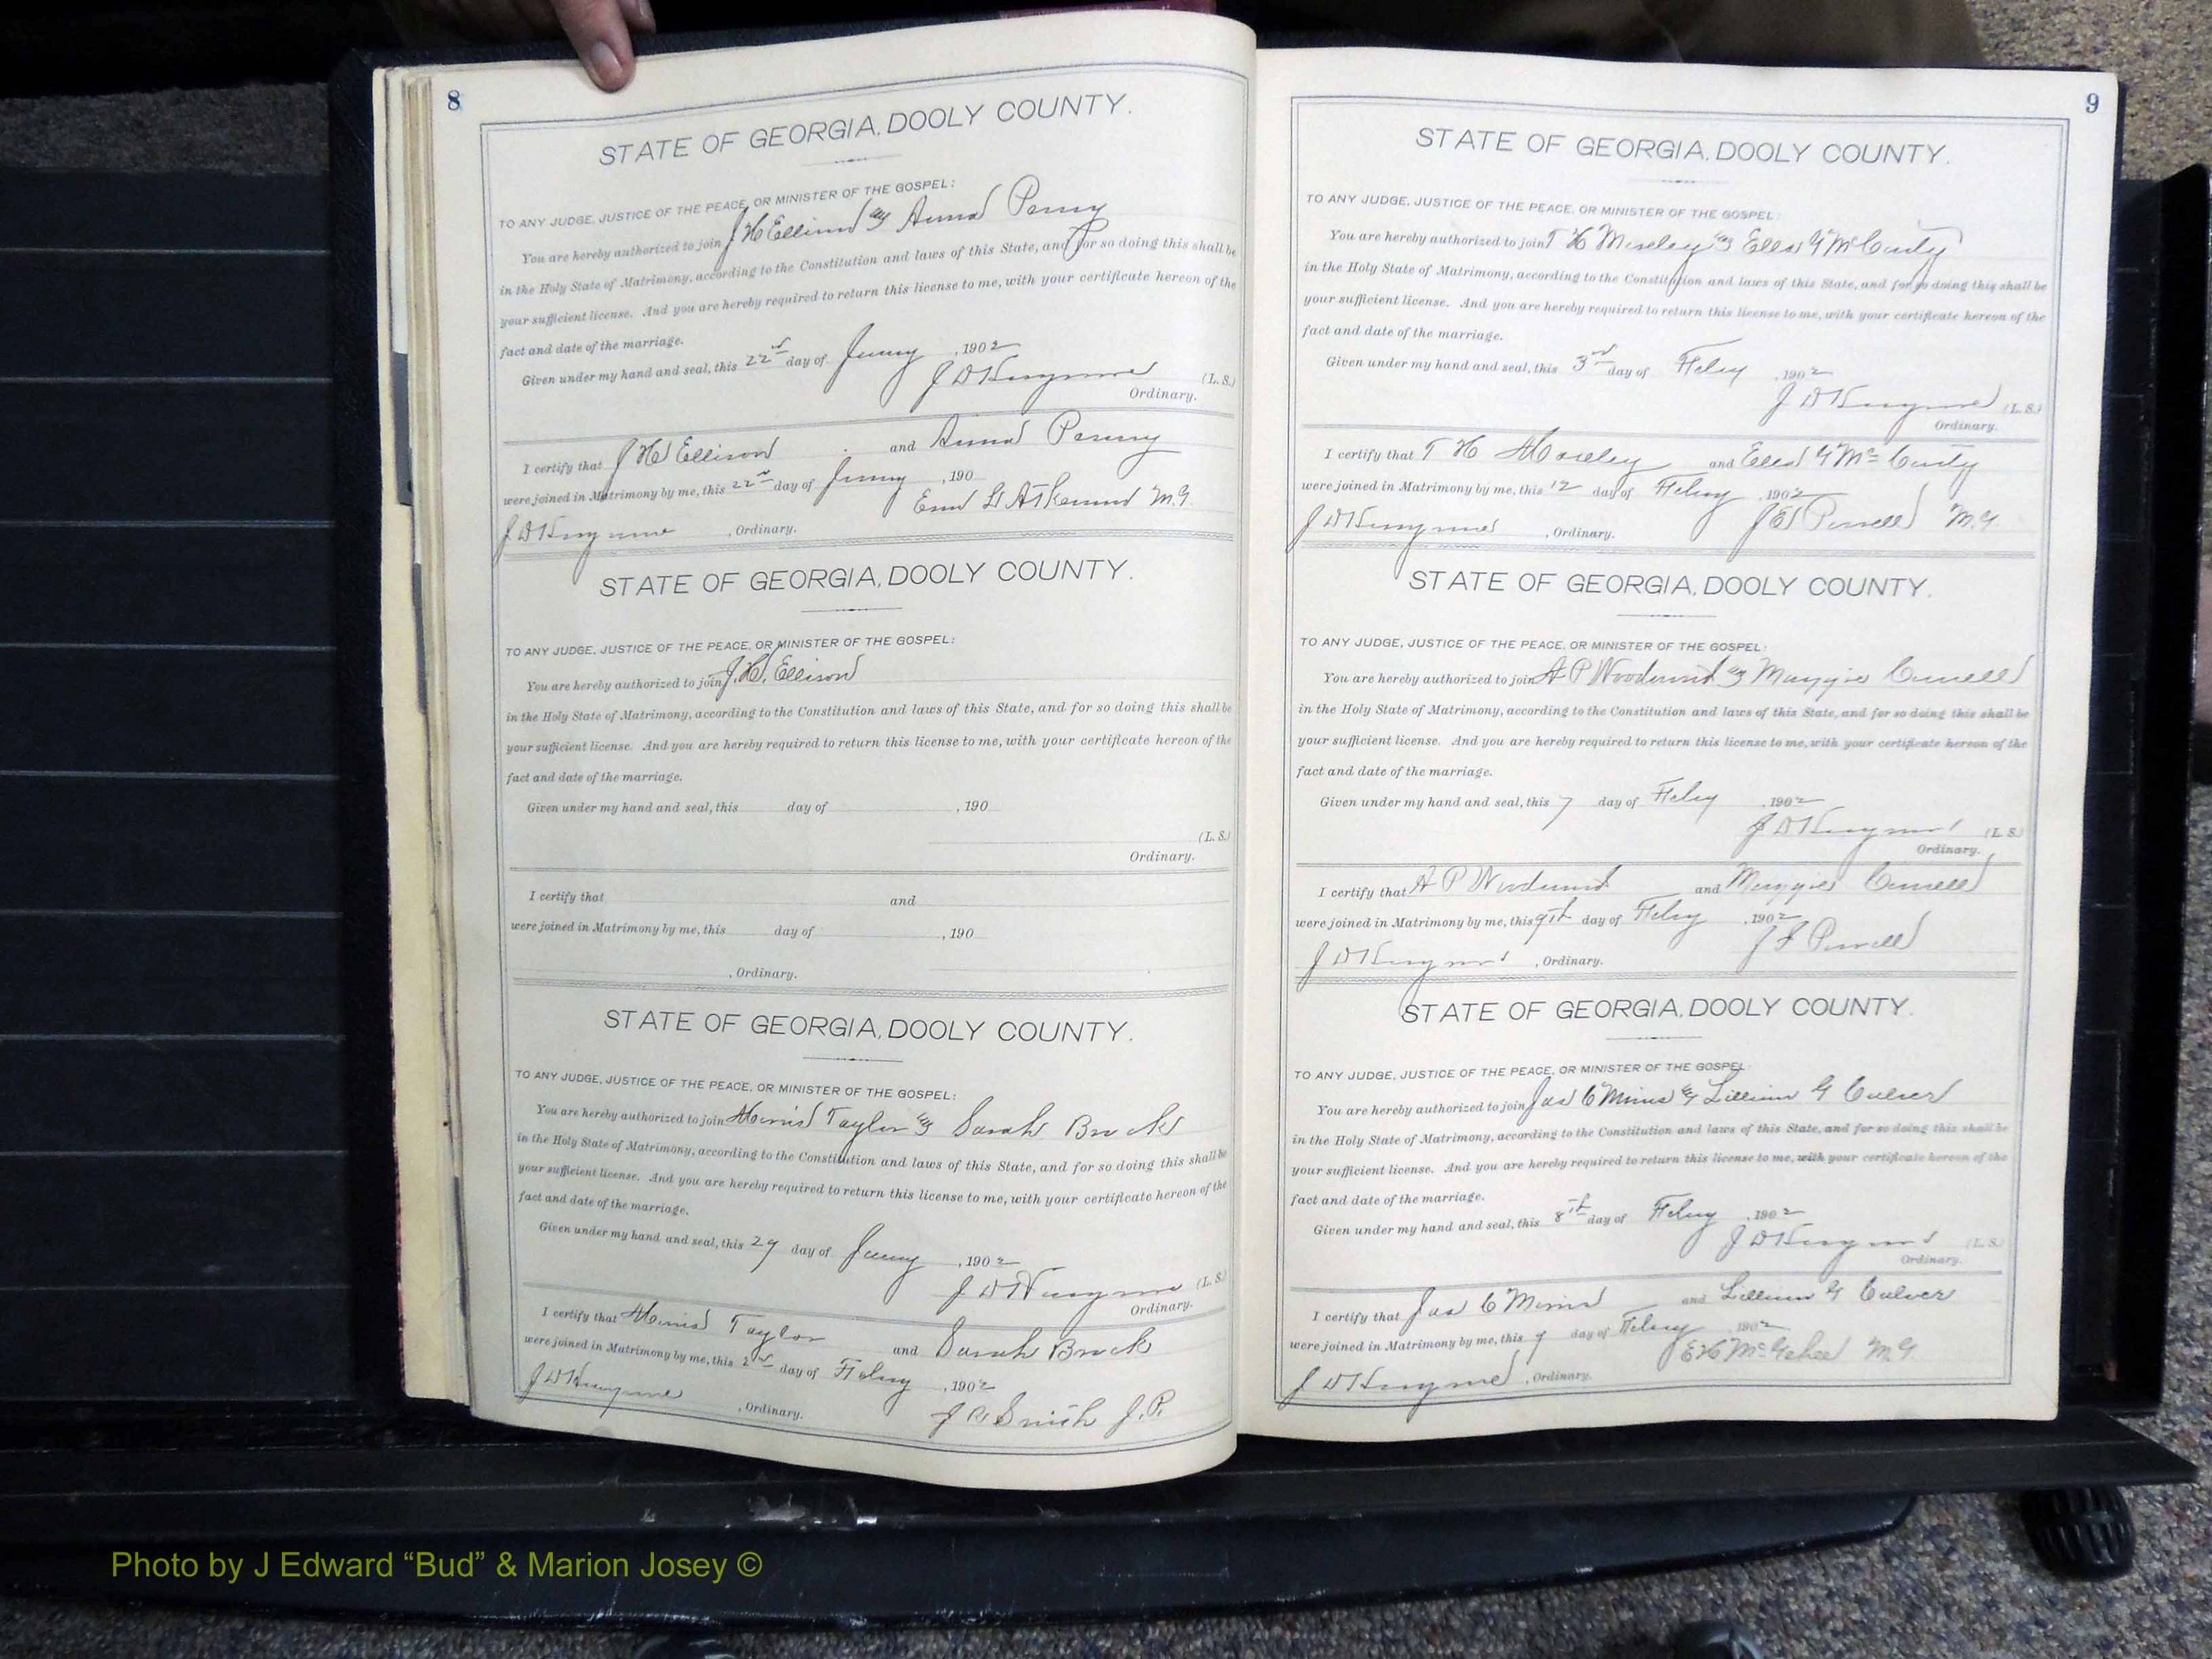 8
STATE OF GEORGIA, DOOLY COUNTY.
TO ANY JUDGE, JUSTICE OF THE PEACE, OR MINISTER OF THE GOSPEL:
You are hereby authorized to join J H Ellison & Anna Penny
in the Holy State of Matrimony, according to the Constitution and laws of this State, and for so doing this shall be
your sufficient license. And you are hereby required to return this license to me, with your certificate hereon of the
fact and date of the marriage.
Given under my hand and seal, this 22nd day of Jany , 1902
J D Hargrove (L. S.)
Ordinary.
I certify that J H Ellison and Anna Penny
were joined in Matrimony by me, this 22nd day of Jany , 190
L Atkinson M.G.
J D Hargrove , Ordinary.
STATE OF GEORGIA, DOOLY COUNTY.
TO ANY JUDGE, JUSTICE OF THE PEACE, OR MINISTER OF THE GOSPEL:
You are hereby authorized to join J. H. Ellison
in the Holy State of Matrimony, according to the Constitution and laws of this State, and for so doing this shall be
your sufficient license. And you are hereby required to return this license to me, with your certificate hereon of the
fact and date of the marriage.
Given under my hand and seal, this day of , 190
(L. S.)
Ordinary.
I certify that and
were joined in Matrimony by me, this day of , 190
, Ordinary.
STATE OF GEORGIA, DOOLY COUNTY.
TO ANY JUDGE, JUSTICE OF THE PEACE, OR MINISTER OF THE GOSPEL:
You are hereby authorized to join Taylor & Sarah Brock
in the Holy State of Matrimony, according to the Constitution and laws of this State, and for so doing this shall be
your sufficient license. And you are hereby required to return this license to me, with your certificate hereon of the
fact and date of the marriage.
Given under my hand and seal, this 29 day of Jany , 1902
J D Hargrove (L. S.)
Ordinary.
I certify that Taylor and Sarah Brock
were joined in Matrimony by me, this 2nd day of Feby , 1902
J R Smith J.P.
J D Hargrove , Ordinary.
9
STATE OF GEORGIA, DOOLY COUNTY.
TO ANY JUDGE, JUSTICE OF THE PEACE, OR MINISTER OF THE GOSPEL:
You are hereby authorized to join T H Moseley & Ella G McCurdy
in the Holy State of Matrimony, according to the Constitution and laws of this State, and for so doing this shall be
your sufficient license. And you are hereby required to return this license to me, with your certificate hereon of the
fact and date of the marriage.
Given under my hand and seal, this 3rd day of Feby , 1902
J D Hargrove (L. S.)
Ordinary.
I certify that T H Moseley and Ella G McCurdy
were joined in Matrimony by me, this 12 day of Feby , 1902
Powell M.G.
J D Hargrove , Ordinary.
STATE OF GEORGIA, DOOLY COUNTY.
TO ANY JUDGE, JUSTICE OF THE PEACE, OR MINISTER OF THE GOSPEL:
You are hereby authorized to join A P Woodward & Maggie
in the Holy State of Matrimony, according to the Constitution and laws of this State, and for so doing this shall be
your sufficient license. And you are hereby required to return this license to me, with your certificate hereon of the
fact and date of the marriage.
Given under my hand and seal, this 7 day of Feby , 1902
J D Hargrove (L. S.)
Ordinary.
I certify that A P Woodward and Maggie
were joined in Matrimony by me, this 9th day of Feby , 1902
Powell
J D Hargrove , Ordinary.
STATE OF GEORGIA, DOOLY COUNTY.
TO ANY JUDGE, JUSTICE OF THE PEACE, OR MINISTER OF THE GOSPEL:
You are hereby authorized to join Jas C Mims & Lillian G Culver
in the Holy State of Matrimony, according to the Constitution and laws of this State, and for so doing this shall be
your sufficient license. And you are hereby required to return this license to me, with your certificate hereon of the
fact and date of the marriage.
Given under my hand and seal, this 8th day of Feby , 1902
J D Hargrove (L. S.)
Ordinary.
I certify that Jas C Mims and Lillian G Culver
were joined in Matrimony by me, this 9 day of Feby , 1902
E H McGehee M.G.
J D Hargrove , Ordinary.
Photo by J Edward “Bud” & Marion Josey ©